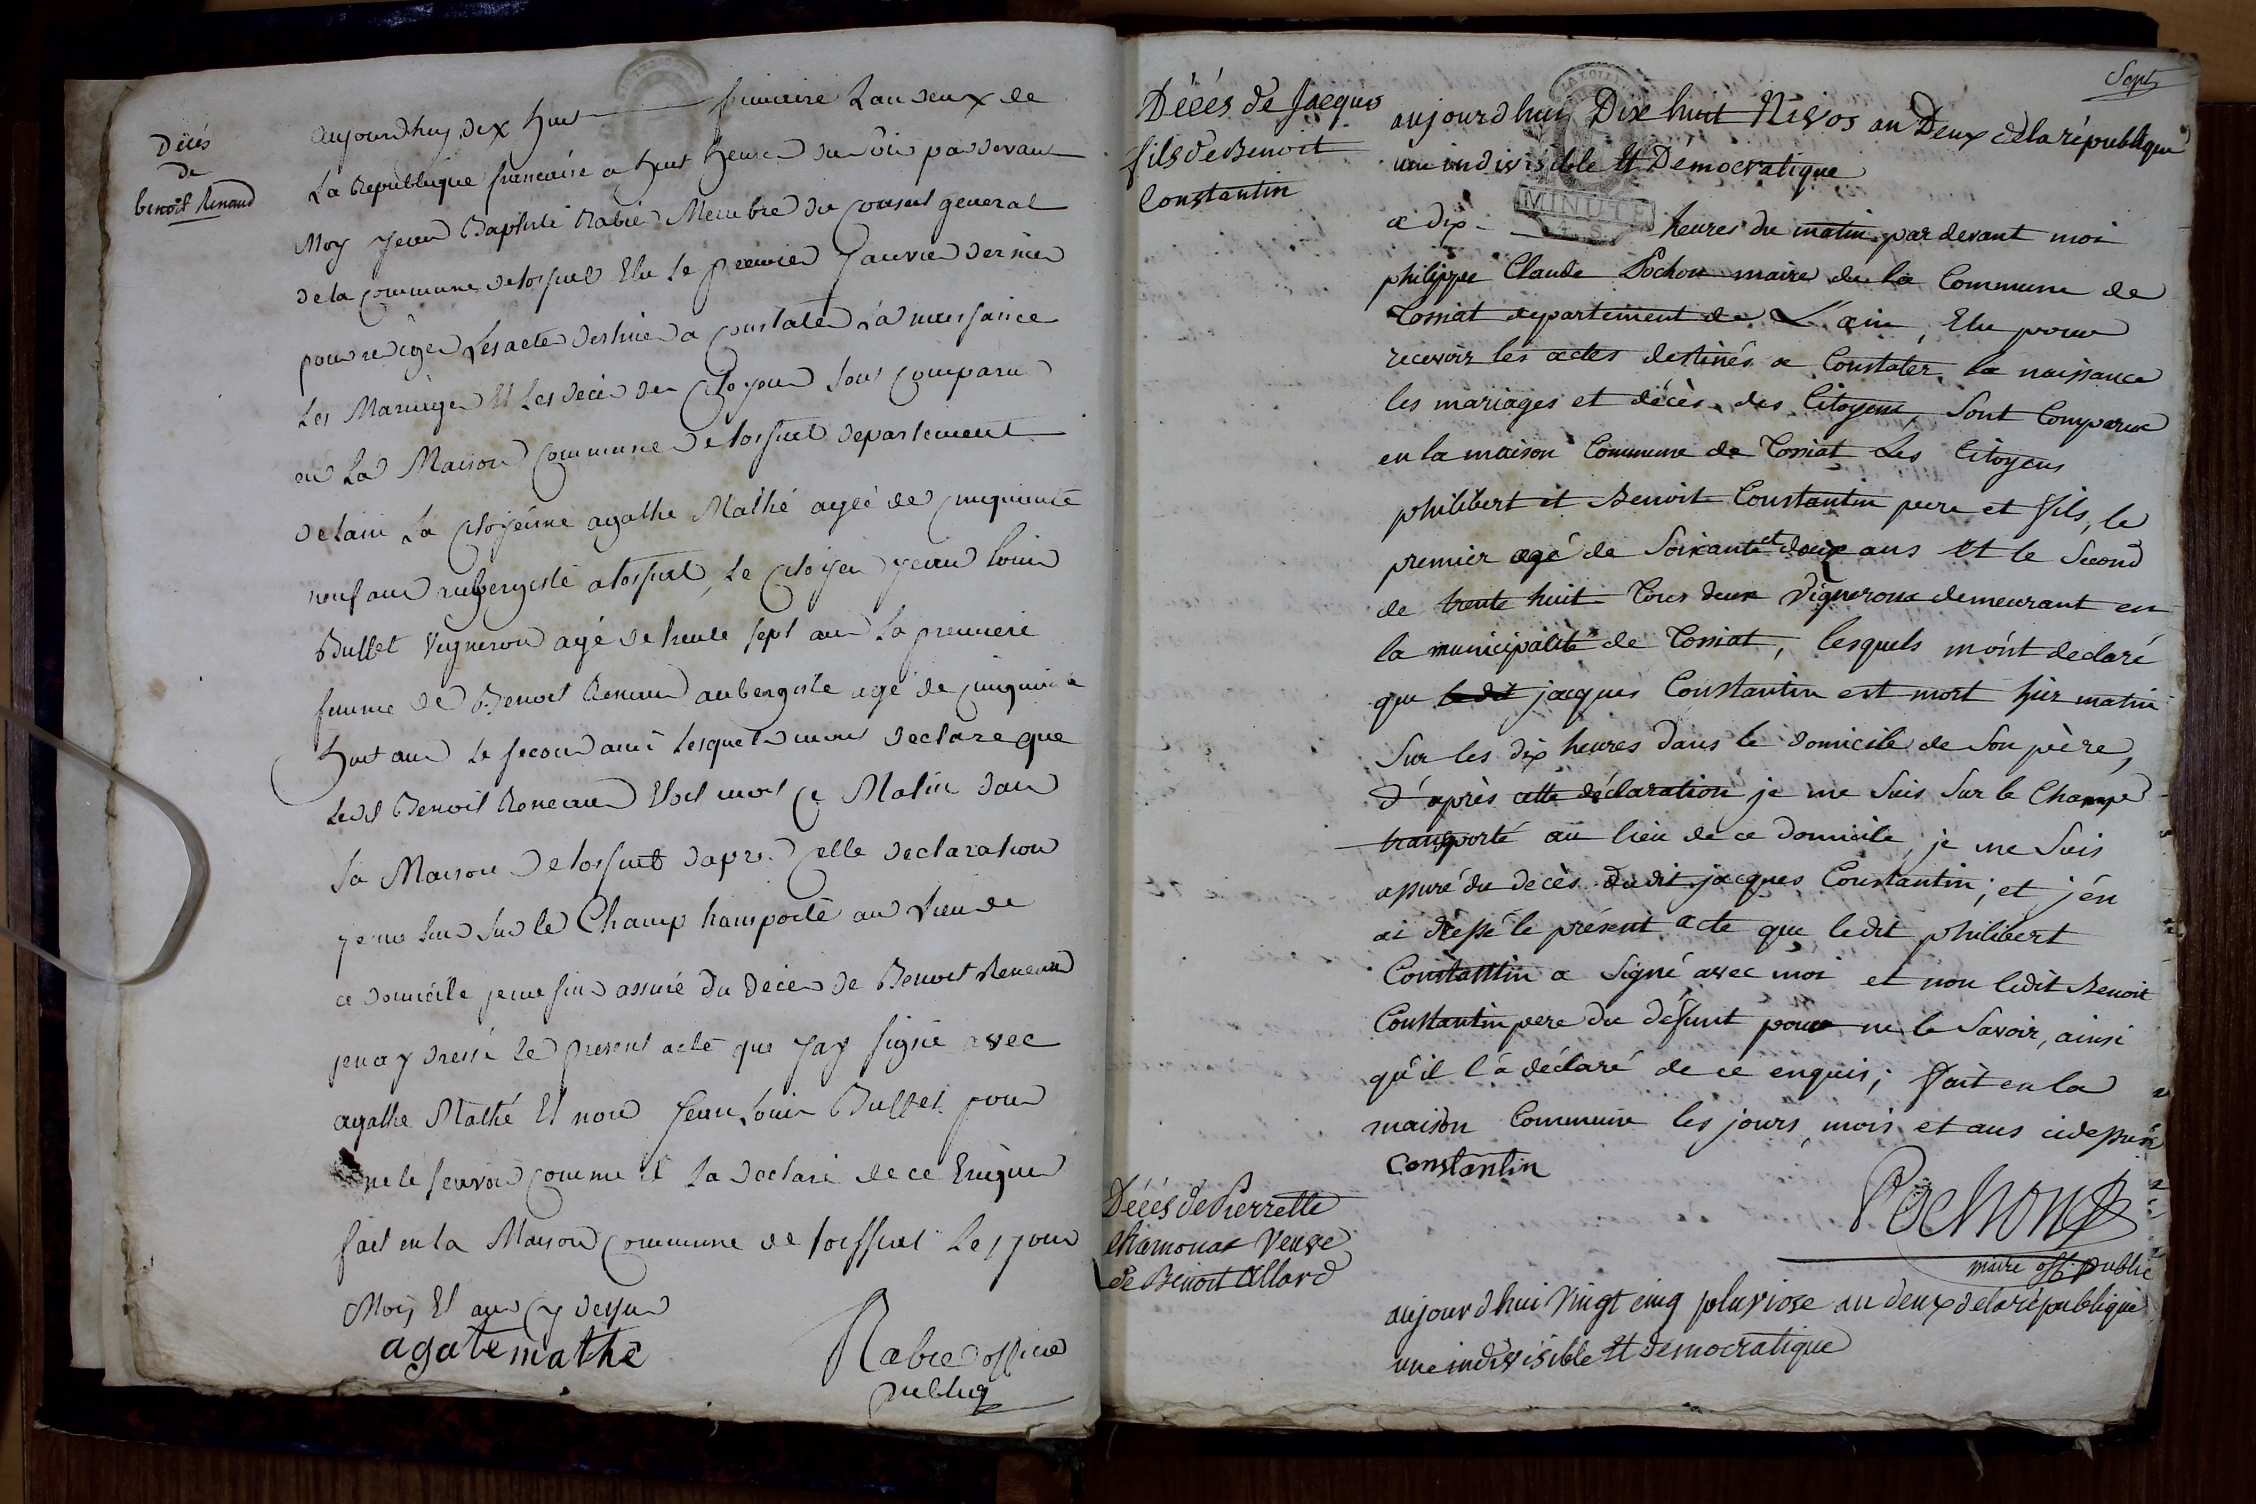 Décés
de
benoit Renaud
aujourdhuy dix huit frimaire Lan deux de
La Republique francaise a huit heure du soir par devant
Moy jean Baptiste Rabié Membre du conseil general
de la commune de tossiat Elu le premier janvier dernier
pour rediger Les acte destiné a constater La naissance
Les Mariage Et Les decès des citoyen sont comparu
en La Maison commune de tossiat departement
de lain La citoyenne agathe Mathé agée de cinquante
neuf ans aubergiste a tossiat, Le citoyen jean Louis
Buffet Vigneron agé de trente sept ans La premiere
femme de Benoit Renaud aubergiste agé de cinquante
huit ans Le second ami Lesquels mont declare que
Ledit Benoit Renaud Etoit mort ce Matin dans
sa Maison de tossiat dapres cette declaration
je me suis sur le Champ transporté au Lieu de
ce domicile je me suis assuré du decès de Benoit Renaud
jen ay dressé Le present acte que jay signé avec
agathe Mathé Et non jean Louis Buffet pour
ne le scavoir comme il La declaré de ce Enquis
fait en la Maison commune de tossiat Les jour
Mois Et an cy dessus
agate mathe
Rabie officier
publicq
Sept
Décés de Jacques
fils de Benoit
Constantin
aujourd'hui Dix huit Nivos an Deux de la république
une indivisible Et Démocratique
MINUTE
a dix heures du matin par devant moi
philippe Claude Pochon maire de la Commune de
Tossiat departement de L'ain, Elu pour
recevoir les actes destinés a Constater la naissance
les mariages et décès des Citoyens, Sont Comparus
en la maison Commune de Tossiat Les Citoyens
philibert et Benoit Constantin pere et fils, le
premier agé de Soixante et douze ans Et le Second
de trente huit Tous deux Vignerons demeurant en
la municipalité de Tossiat, lesquels m'ont declaré
que ledit jacques Constantin est mort hier matin
Sur les dix heures dans le domicile de Son père,
d'après cette déclaration je me Suis Sur le Champ
transporté au lieu de ce domicile, je me Suis
assuré du decès dudit jacques Constantin; et j'en
ai dressé le présent acte que ledit philibert
Constantin a Signé avec moi et non ledit Benoit
Constantin pere du défunt pour ne le Savoir, ainsi
qu'il l'a déclaré de ce enquis; fait en la
maison Commune les jours, mois et ans cidessus
constantin
Pochon
maire off. public
Décés de Pierrette
Chamonat Veuve
de Benoit Allard
aujourd'hui Vingt cinq pluviose an deux de la république
une indivisible Et démocratique